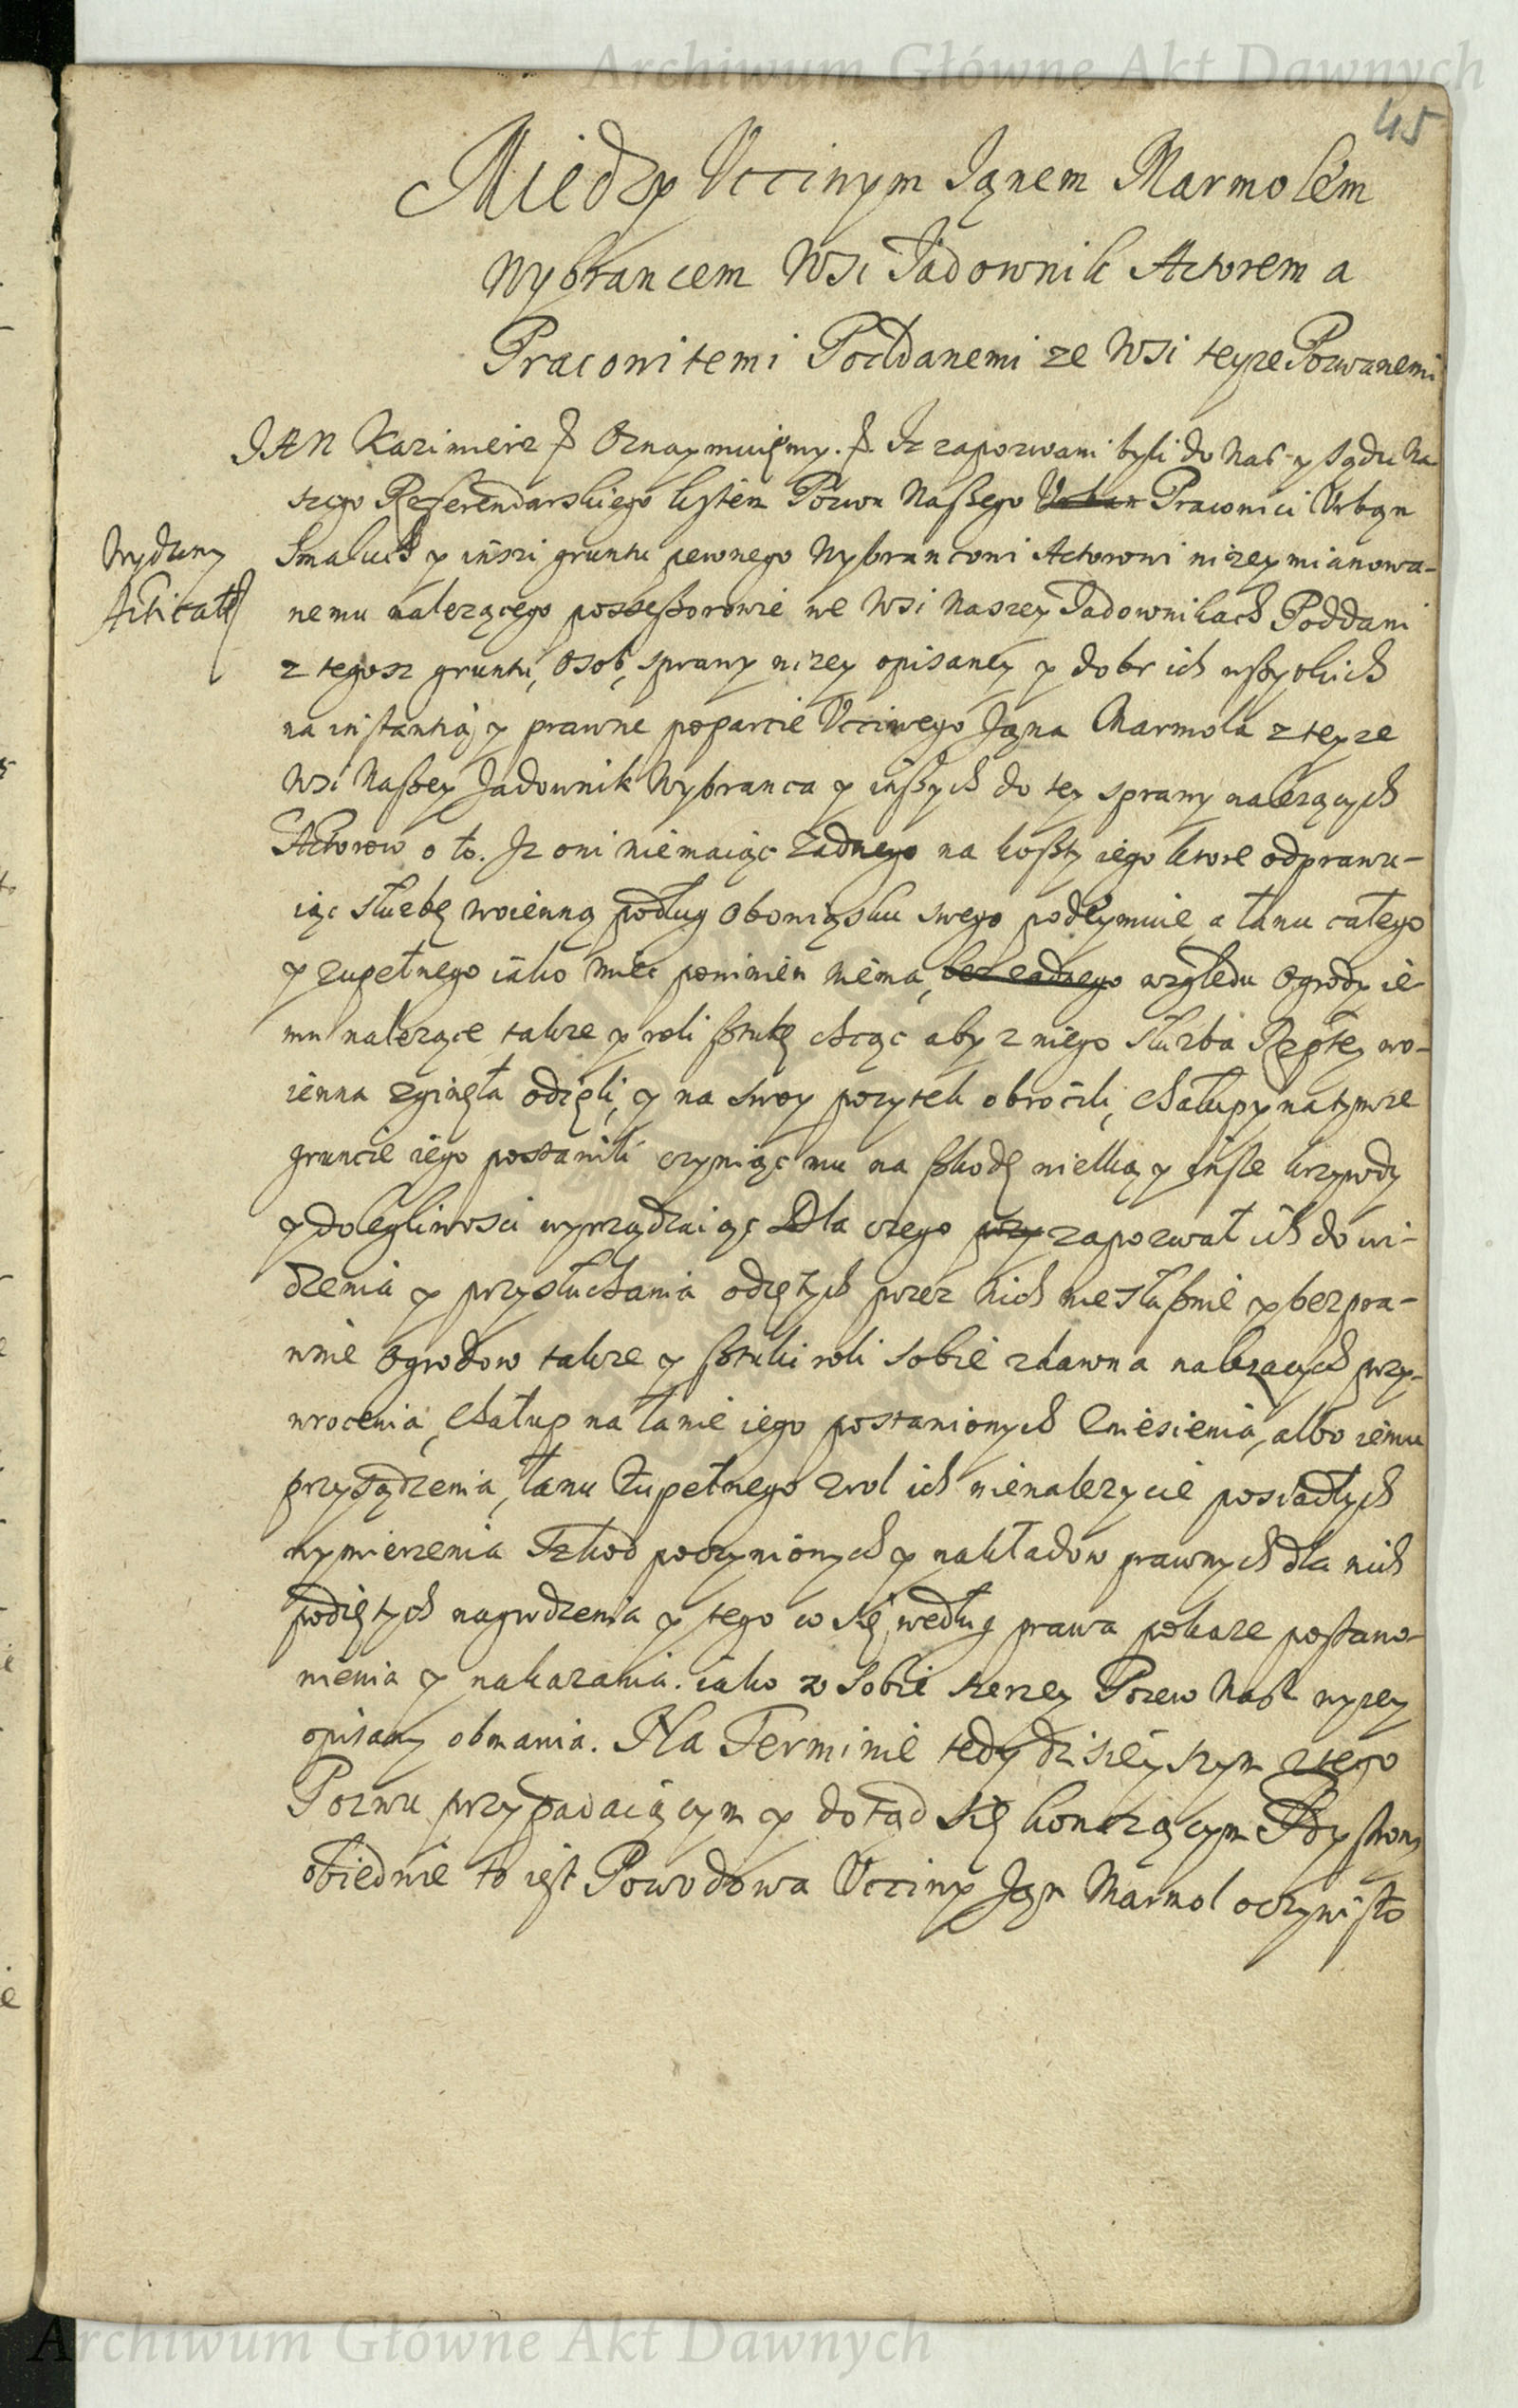 Archiwum Główne Akt Dawnych
45
Między Vcciwym Janem Marmolem
Wybrancem Wsi Jadownik Actorem a
Pracowitemi Poddanemi ze Wsi teyze Pozwanemi
JAN Kazimierz Oznaymuięmy. Iz zapozwani byli do Nas y sądu Na
szego Referendarskiego listem Pozwu Naszego Urban Pracowici Vrban
Smaluch y inszi gruntu pewnego Wybrancowi Actorowi nizey mianowa-
Wydany
Acticat
nemu nalezącego possessorowie we Wsi Naszey Jadownikach Poddani
z tegosz gruntu, osob, sprawy nizey opisaney y dobr ich wszytkich
na instantią y prawne poparcie Vcciwego Jana Marmola z teyze
Wsi Naszey Jadownik Wybranca y inszych do tey sprawy nalezących
Actorow o to. Iz oni niemaiąc zadnego na koszty iego ktore odprawu-
iąc słuzbę woienną podług obowiąsku swego podeymuie a łanu całego
y zupełnego iako miec powinien niema, bez zadnego względu ogrody ie
mu nalezące takze y roli sztukę chcąc aby z niego słuzba Rzptey wo-
ienna zginęła odięli, y na swoy pozytek obrocili, chałupy natymze
gruncie iego postawili czyniąc mu na szkodę wielką y insze krzywdy
y dolegliwosci wyrządzaiąc Dla czego przy zapozwał ich do wi-
dzenia y przysłuchania odiętych przez nich niesłusznie y bezpra-
wnie ogrodow takze y sztuki roli sobie zdawna nalezących przy-
wrocenia, chałup na łanie iego postawionych zniesienia, albo iemu
przysądzenia, łanu zupełnego z rol ich nienalezycie posiadłych
wymierzenia szkod poczynionych y nakładow prawnych dla nich
podiętych nagrodzenia y tego co się według prawa pokaze postano-
wienia y nakazania. iako w sobie szerzey Pozew Nasz wyzey
opisany obmawia. Na Terminie tedy dzisieyszym z tego
Pozwu przypadaiącym y dotąd się konczącym Gdy strony
obiedwie to iest Powodowa Vcciwy Jan Marmol oczywisto
Archiwum Główne Akt Dawnych